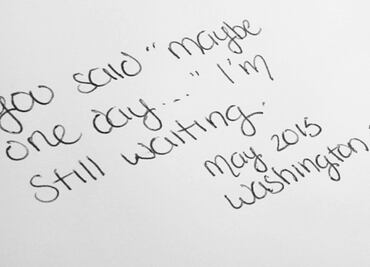 you said "maybe
one day..." I'm
still waiting.
May 2015
Washington